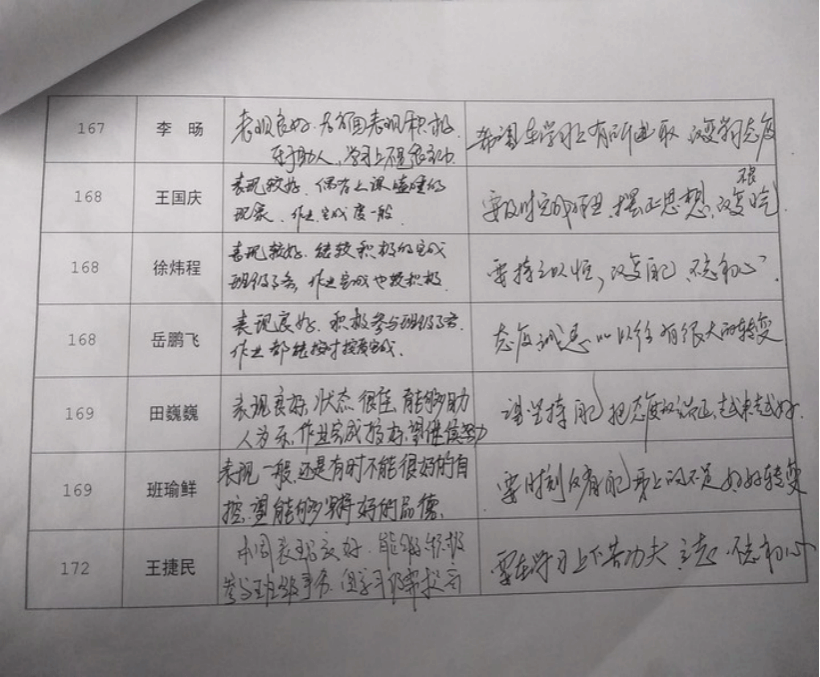 167 李旸 表现良好.本周表现积极.
乐于助人,学习上不是很主动.
希望在学习上有所进取 改变学习态度
168 王国庆 表现较好.偶有上课瞌睡的
现象.作业完成度一般.
要及时完成作业.摆正思想,改变
168 徐炜程 表现较好.能较积极的完成
班级事务,作业完成也较积极.
要持之以恒,改变自己,不忘初心.
168 岳鹏飞 表现良好.积极参与班级事务.
作业都能按时按质完成.
态度诚恳 比以往有很大的转变
169 田巍巍 表现良好,状态很佳,能够助
人为乐,作业完成较好,望继续努力
请坚持自己 把态度 端正,越来越好.
169 班瑜鲜 表现一般,还是有时不能很好的自
控,望能够坚持好的品德.
要时刻 自己身上的不足 好好转变
172 王捷民 本周表现良好.能够积极
参与班级事务.但学习 提高
要在学习上下苦功夫 不忘初心